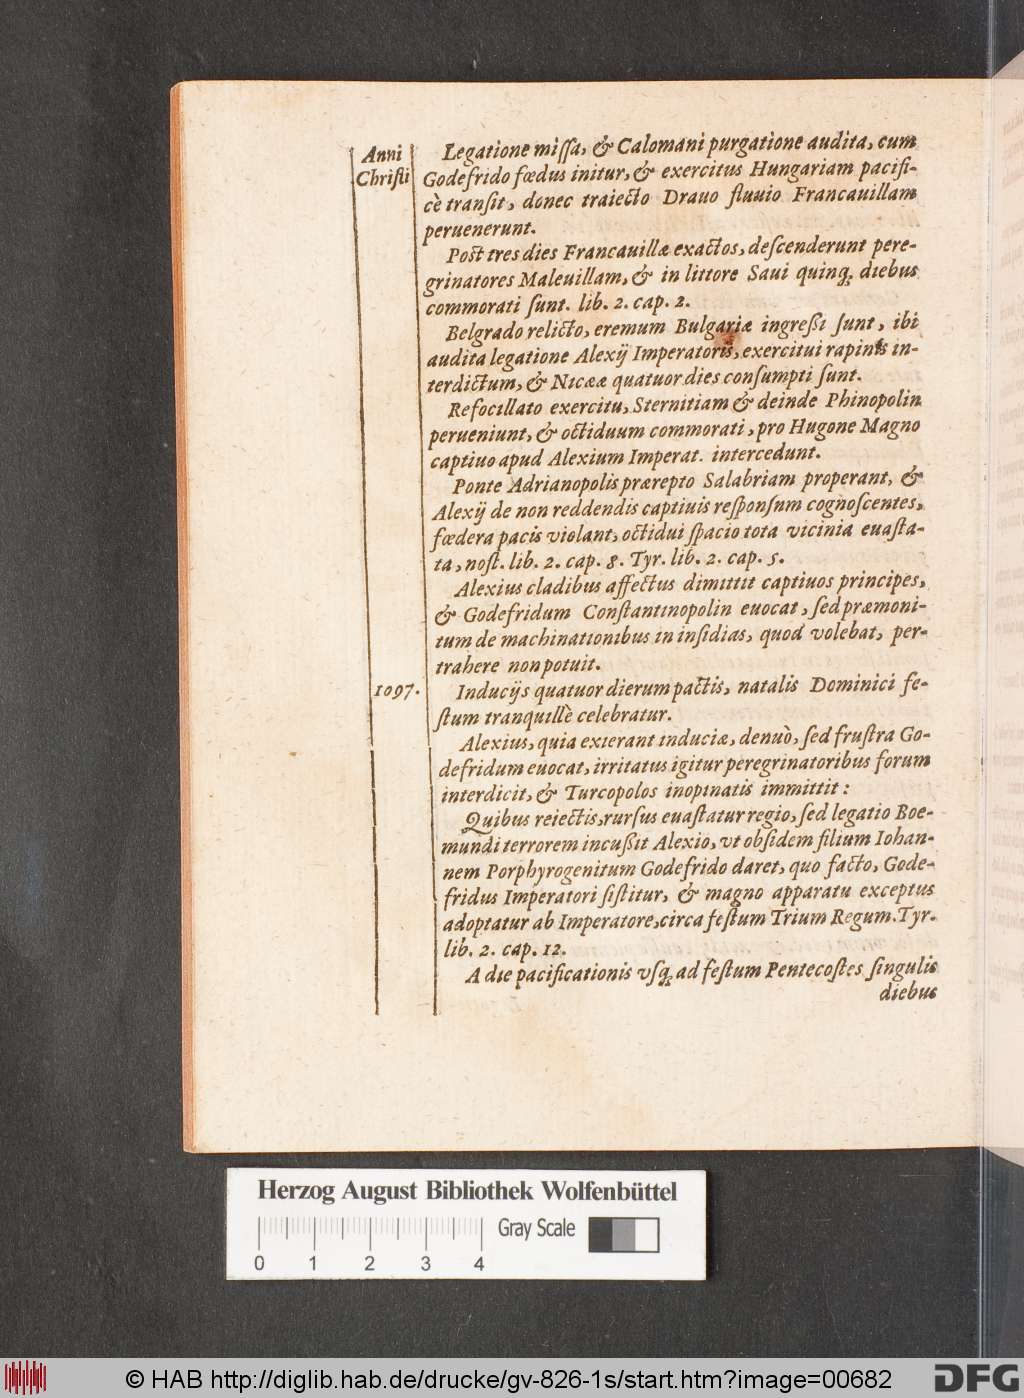 Anni
Christi
Legatione missa, & Calomani purgatione audita, cum
Godefrido fœdus initur, & exercitus Hungariam pacifi-
cè transit, donec traiecto Drauo fluuio Francauillam
peruenerunt.
Post tres dies Francauillæ exactos, descenderunt pere-
grinatores Maleuillam, & in littore Saui quinq; diebus
commorati sunt. lib. 2. cap. 2.
Belgrado relicto, eremum Bulgariæ ingreßi sunt, ibi
audita legatione Alexij Imperatoris, exercitui rapinis in-
terdictum, & Nicææ quatuor dies consumpti sunt.
Refocillato exercitu, Sternitiam & deinde Phinopolin
perueniunt, & octiduum commorati, pro Hugone Magno
captiuo apud Alexium Imperat. intercedunt.
Ponte Adrianopolis prærepto Salabriam properant, &
Alexij de non reddendis captiuis responsum cognoscentes,
fœdera pacis violant, octidui spacio tota vicinia euasta-
ta, nost. lib. 2. cap. 8. Tyr. lib. 2. cap. 5.
Alexius cladibus affectus dimittit captiuos principes,
& Godefridum Constantinopolin euocat, sed præmoni-
tum de machinationibus in insidias, quod volebat, per-
trahere non potuit.
1097.
Inducijs quatuor dierum pactis, natalis Dominici fe-
stum tranquillè celebratur.
Alexius, quia exierant induciæ, denuò, sed frustra Go-
defridum euocat, irritatus igitur peregrinatoribus forum
interdicit, & Turcopolos inopinatis immittit:
Quibus reiectis, rursus euastatur regio, sed legatio Boe-
mundi terrorem incußit Alexio, vt obsidem filium Iohan-
nem Porphyrogenitum Godefrido daret, quo facto, Gode-
fridus Imperatori sistitur, & magno apparatu exceptus
adoptatur ab Imperatore, circa festum Trium Regum. Tyr.
lib. 2. cap. 12.
A die pacificationis vsq; ad festum Pentecostes singulis
diebus
Herzog August Bibliothek Wolfenbüttel
Gray Scale
0 1 2 3 4
© HAB http://diglib.hab.de/drucke/gv-826-1s/start.htm?image=00682
DFG